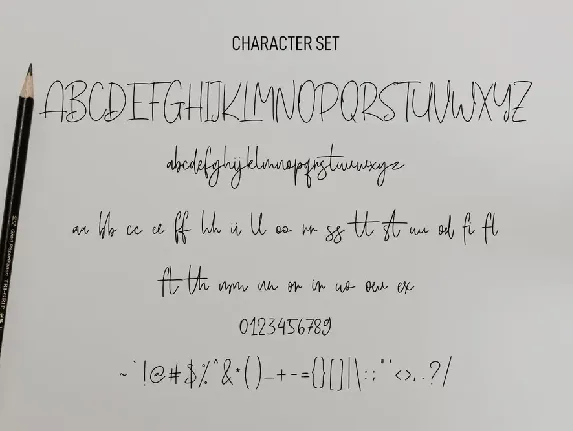 CHARACTER SET
ABCDEFGHIJKLMNOPQRSTUVWXYZ
abcdefghijklmnopqrstuvwxyz
ar bb cc ee ff hh ii ll oo rr ss tt st od fi fl
ft th on in ex
0123456789
~`!@#$%^&*()_+-={}[]|\:;"'<>,.?/